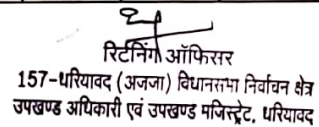 रिटर्निंग ऑफिसर
157-धरियावद (अजजा) विधानसभा निर्वाचन क्षेत्र
उपखण्ड अधिकारी एवं उपखण्ड मजिस्ट्रेट, धरियावद